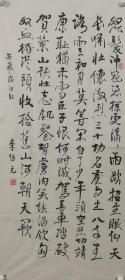 怒髮衝冠憑欄處瀟瀟雨歇抬望眼仰天
長嘯壯懷激烈三十功名塵與土八千里
路雲和月莫等閒白了少年頭空悲切靖
康恥猶未雪臣子恨何時滅駕長車踏破
賀蘭山缺壯志飢餐胡虜肉笑談渴飲匈
奴血待從頭收拾舊山河朝天闕
岳飛滿江紅 李元